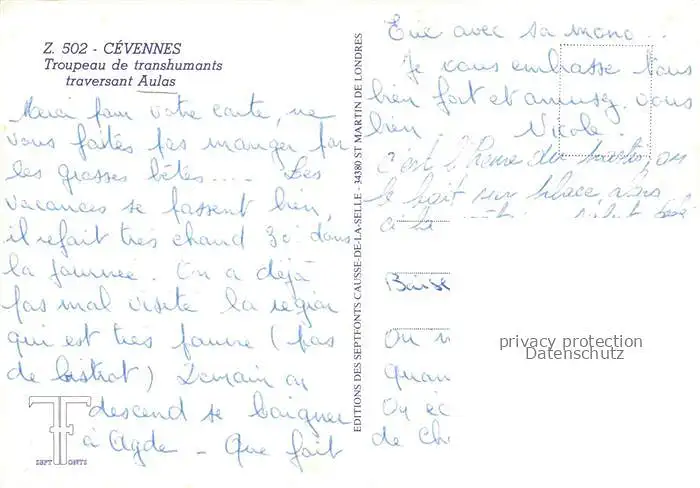 Z. 502 - CÉVENNES
Troupeau de transhumants
traversant Aulas
Merci pour votre carte, ne
vous faites pas manger par
les grosses bêtes.... Les
vacances se passent bien,
il refait très chaud 30° dans
la journée. On a déjà
pas mal visité la région
qui est très pauvre (pas
de bistrot) Demain on
descend se baigner
à Agde - Que fait
SEPT FONTS
EDITIONS DES SEPT-FONTS CAUSSE-DE-LA-SELLE - 34380 ST MARTIN DE LONDRES
Eric avec sa mono...
Je vous embrasse tous
bien fort et amusez vous
bien. Nicole.
c'est l'heure du on
le boit sur place
Baise
On
quan
On éc
de ch
privacy protection
Datenschutz